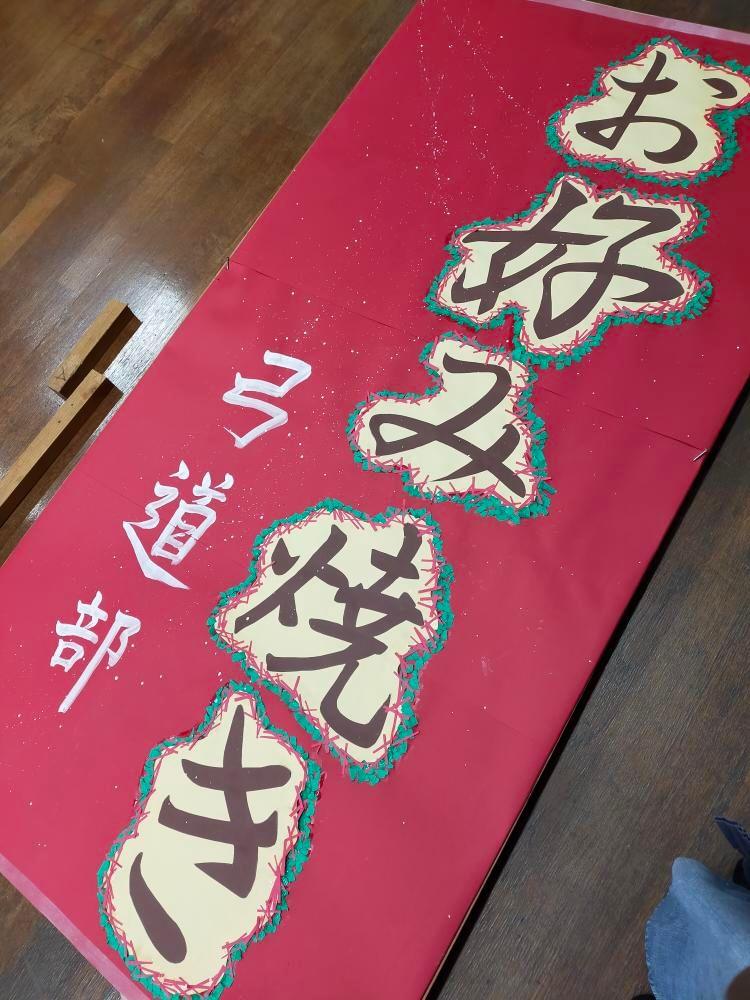 お好み焼き
弓道部